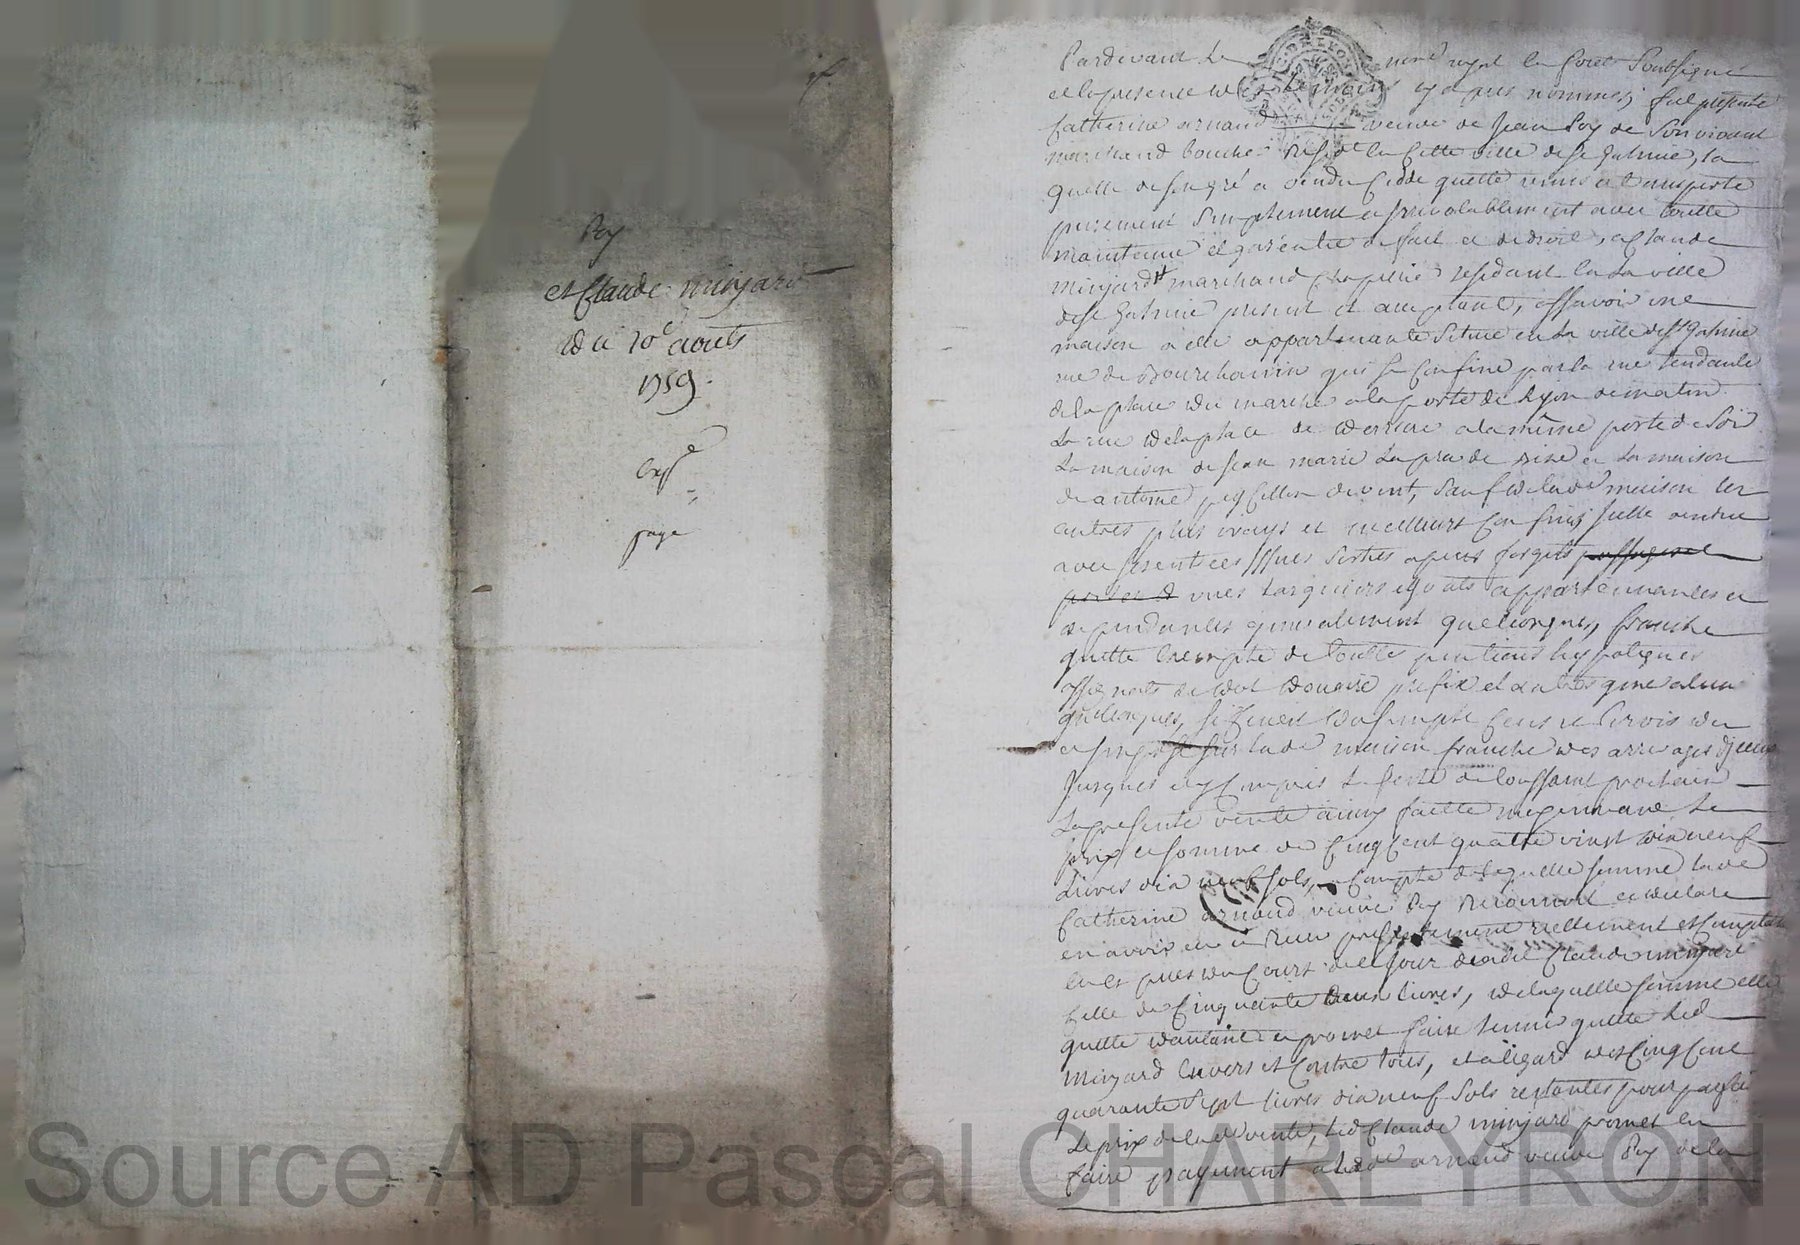 Pey
et Claude minjard
Du 20e aoust
1759.
Exp
page
Pardevant Le nore royal en foret Soubsigné
et en presence des temoins cy apres nommes, fut presente
Catherine arnaud veuve de Jean Pey de Son vivant
marchand boucher Resident en Cette ville de St Galmier, la
quelle de son gré a vendu Cedde quitte remis et transporte
purement Simplement et irrevocablement avec toutte
maintenue et garentie de fait et de droit, a Claude
minjard marchand Chapelier residant en La ville
de St Galmier present et acceptant, assavoir une
maison a elle appartenante Situee en La ville de St Galmier
rue de qui se Confine par la rue tendante
de la place du marché a la porte de Lyon de matin
La rue de la place de derriere a la même porte de Soir
La maison de Jean marie La prade de bize et La maison
de antoine de vent, Sauf de lade maison les
autres plus vrays et meilleurs Confins, Icelle vendue
avec ses entrées Issues Sorties
vues appartenances et
dependances generalement quelconques, franche
quitte Exempte de touttes pentions hypoteques
de dot Douaire prefix et autres generalement
quelconques, Si Cens et Servis
lade maison franche des arrerages d'Iceux
Jusques et y Compris La feste de toussaint prochain
La presente vente ainsy faitte moyennant Le
prix et somme de Cinq Cent quatre vingt dix neuf
Livres dix neuf Sols, a Compte de laquelle somme lade
Catherine arnaud veuve Pey Reconnoit et declare
en avoir eu et Reçu presentement reellement et Comptant
en especes du Cours de ce Jour dudit Claude minjard
Celle de Cinquante deux livres, de laquelle somme elle
quitte d'autant et promet faire tenir quitte Led
Minjard Envers et Contre tous, et a l'egard des Cinq Cent
quarante Sept livres dix neuf Sols restantes pour parfait
Le prix de lade vente, Led Claude minjard promet en
faire payement a lade arnaud veuve Pey de la
Source AD Pascal CHARLEYRON